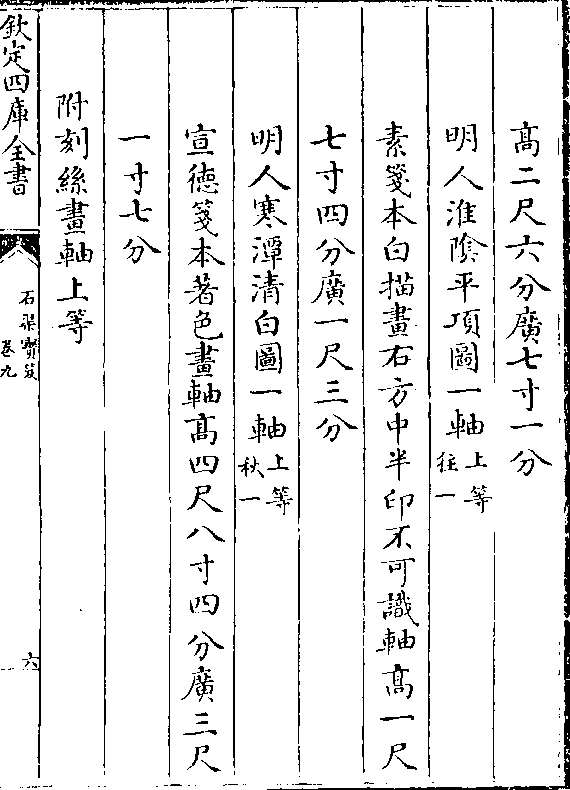 高二尺六分廣七寸一分
明人淮隂平項圖一軸上等
徃一
素箋本白描畫右方中半印不可識軸髙一尺
七寸四分廣一尺三分
明人寒潭清白圖一軸上等
秋一
宣徳箋本著色畫軸髙四尺八寸四分廣三尺
一寸七分
附刻絲畫軸上等
欽定四庫全書
石渠寳笈
卷九
六